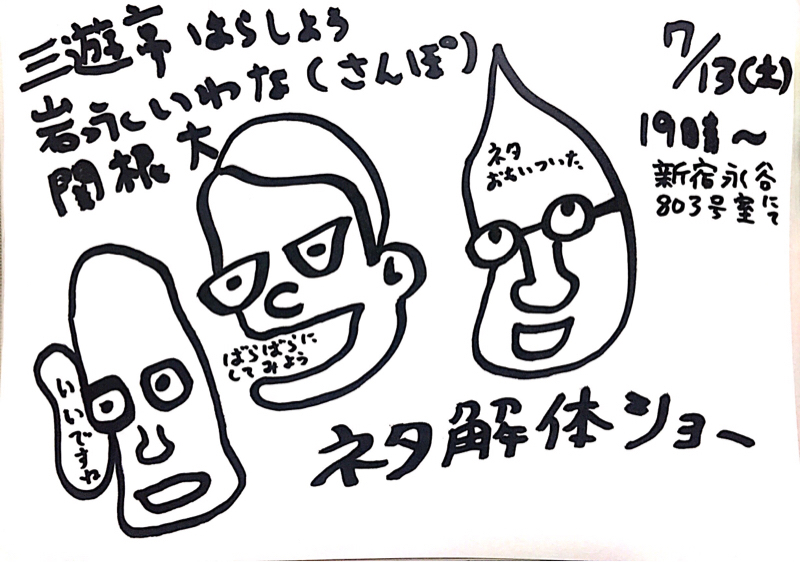 三遊亭はらしょう
岩永いわな(さんぽ)
関根 大
7/13(土)
19時〜
新宿永谷
803号室にて
ネタ
おもいついた
ばらばらに
してみよう
いいですね
ネタ解体ショー